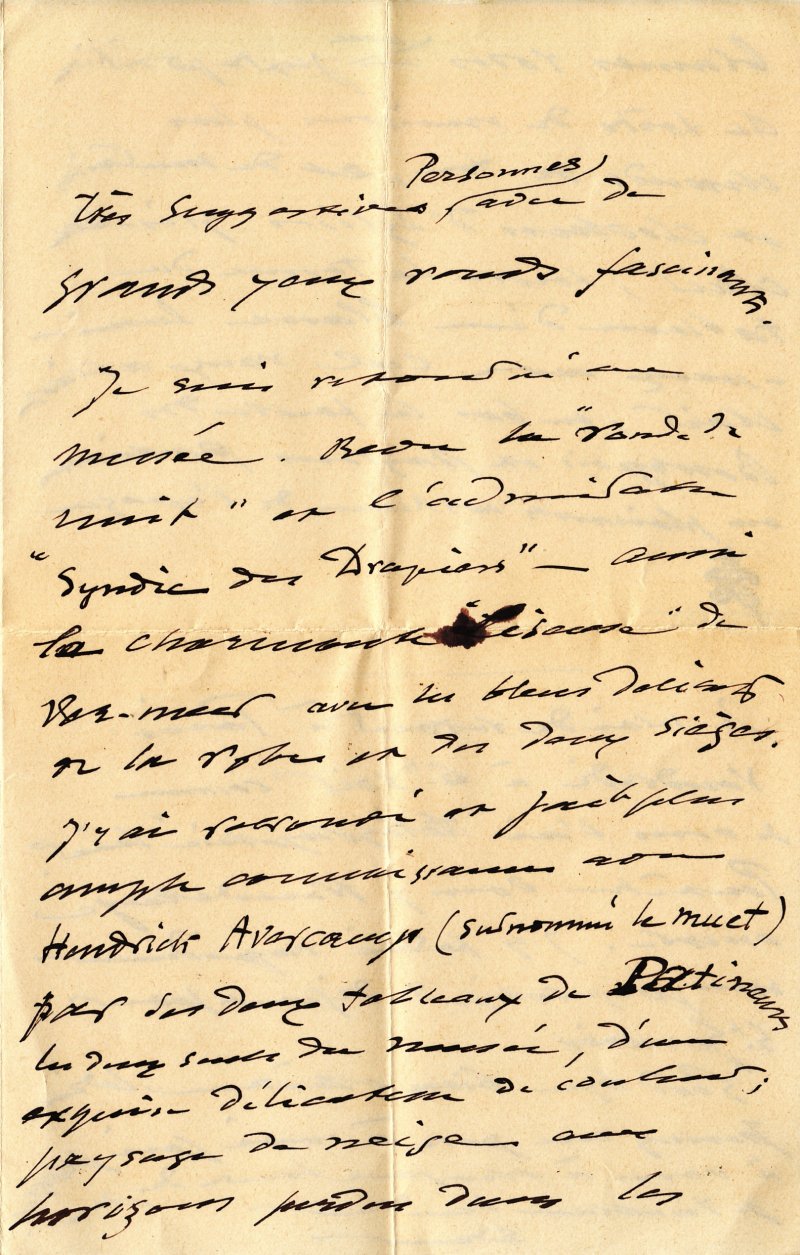 Personnes
très suggestives avec de
grands yeux ronds fascinants.
Je suis retourné au
musée. Revu la "ronde de
nuit" et l'admirable
"Syndic des Drapiers" — aussi
la charmante "Liseuse" de
Ver-meer avec les bleus délicats
de la robe et des deux sièges.
J'y ai retrouvé et fait plus
ample connaissance avec
Hendrick Avercamp (surnommé le muet)
par ses deux tableaux de Patineurs
les deux seuls du musée, d'une
exquise délicatesse de couleur;
paysage de neige aux
horizons perdus dans les